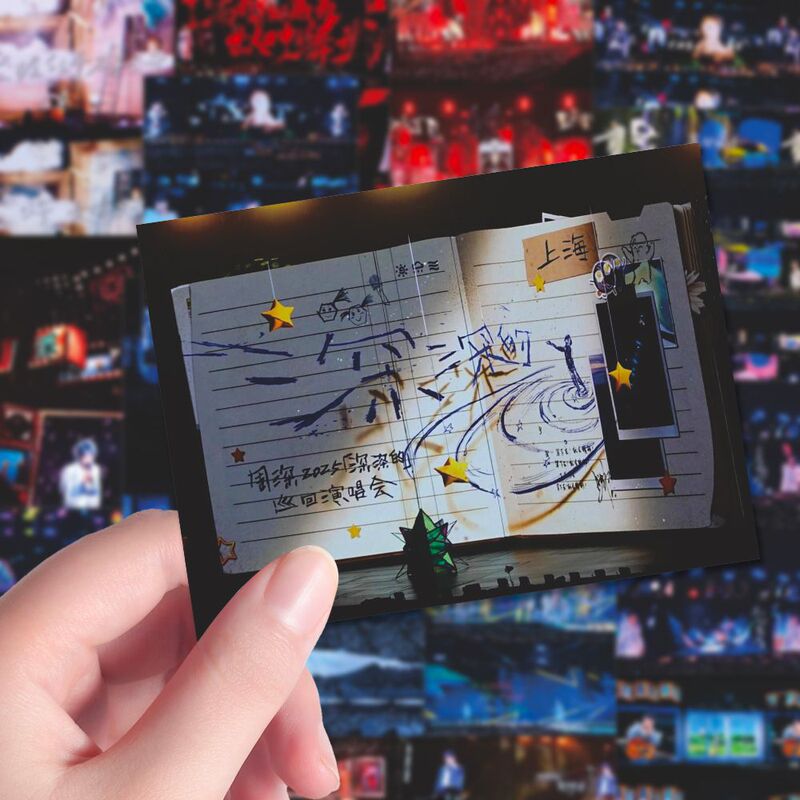 上海
深深的
周深2025「深深的」
巡回演唱会